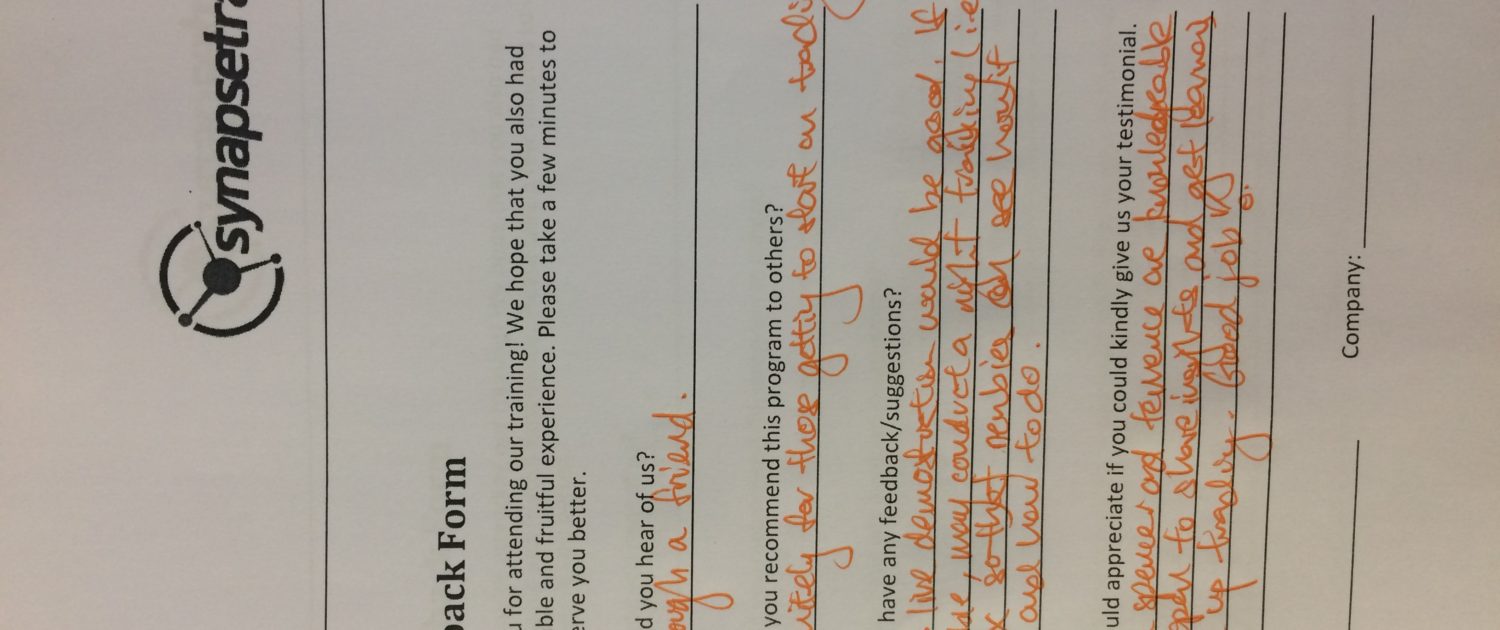 synapsetra
back Form
u for attending our training! We hope that you also had
ble and fruitful experience. Please take a few minutes to
erve you better.
d you hear of us?
ough a friend.
you recommend this program to others?
itely for those getting to start on tradi
have any feedback/suggestions?
live demostration would be good. If
, may conduct a night trading (i.e
so that newbies can see how it
and how to do.
uld appreciate if you could kindly give us your testimonial.
speaker and Terence are knowledgeable
to share insights and get learning
up trading. Good job
Company: